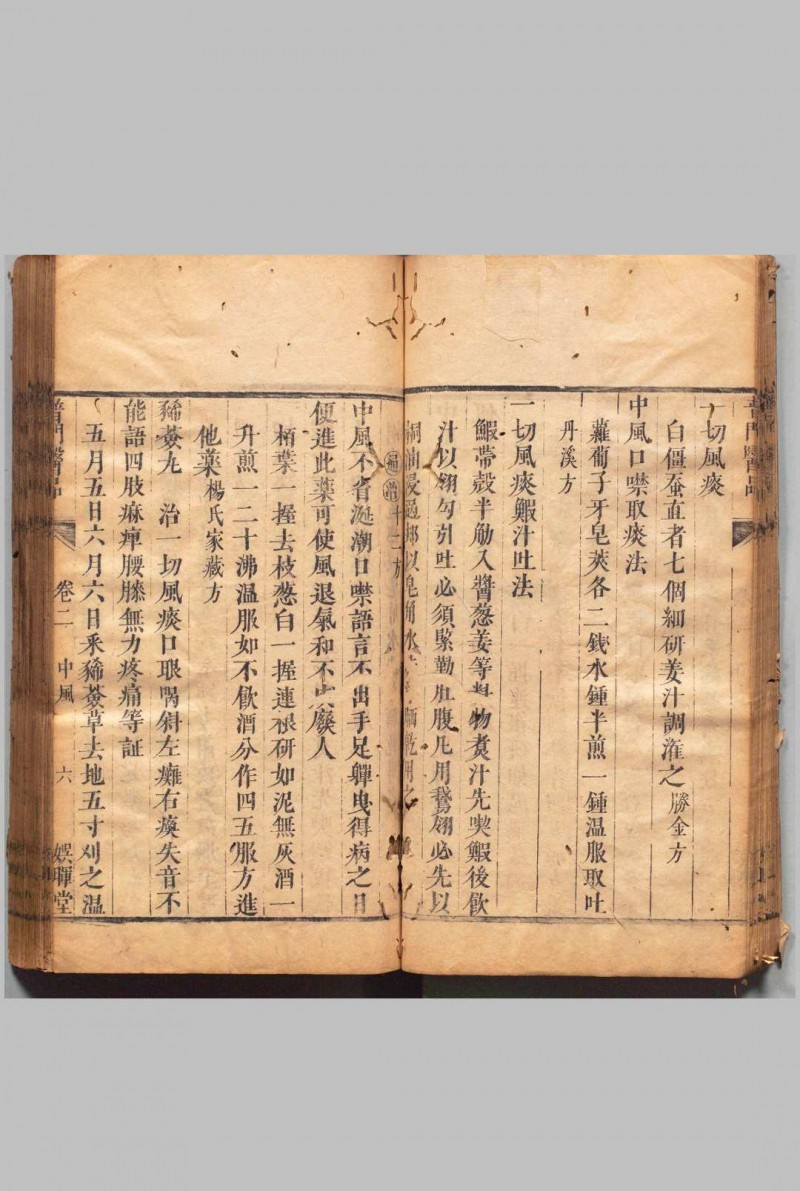 普門醫品
一切風痰
白僵蚕直者七個細研姜汁調灌之勝金方
中風口噤取痰法
蘿蔔子牙皂莢各二錢水鍾半煎一鍾温服取吐
丹溪方
一切風痰鰕汁吐法
鰕帶殻半觔入醬葱姜等料物煑汁先喫鰕後飲
汁以翎勾引吐必須緊勒肚腹凡用鵞翎必先以
桐油浸過却以皂角水
乾用之
通治十二方
中風不省涎潮口噤語言不出手足嚲曳得病之日
便進此藥可使風退氣和不成廢人
栢葉一握去枝葱白一握連根研如泥無灰酒一
升煎一二十沸温服如不飲酒分作四五服方進
他藥楊氏家藏方
豨薟丸 治一切風痰口眼喎斜左癱右瘓失音不
能語四肢麻痺腰膝無力疼痛等証
五月五日六月六日采豨薟草去地五寸刈之温
普門醫品 卷二 中風 六 娯暉堂